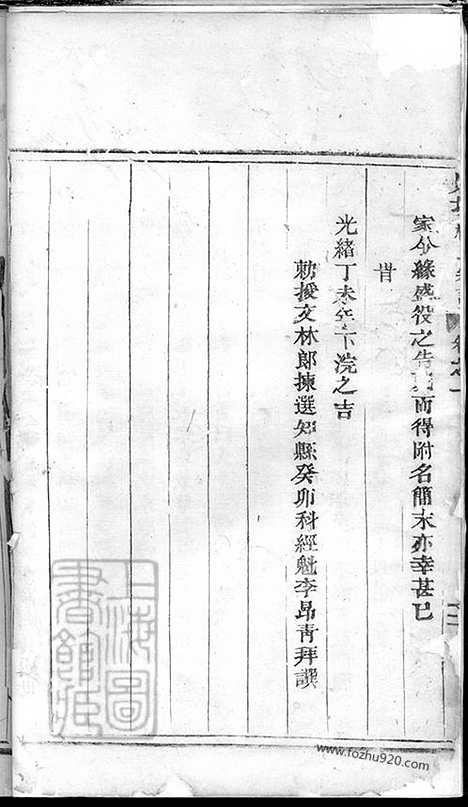 家 緣盛役之告 而得附名簡末亦幸甚已
旹
光緒丁未 下浣之吉
勅授文林郎揀選知縣癸卯科經魁李昂青拜譔
上海圖書館藏
www.fozhu920.com